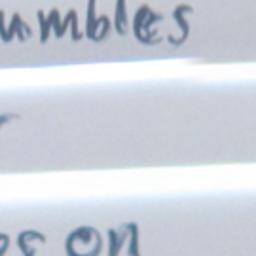 umbles
es on